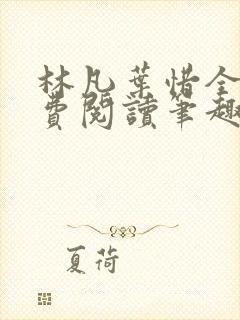 林凡葉惜全
費閱讀筆趣
夏荷